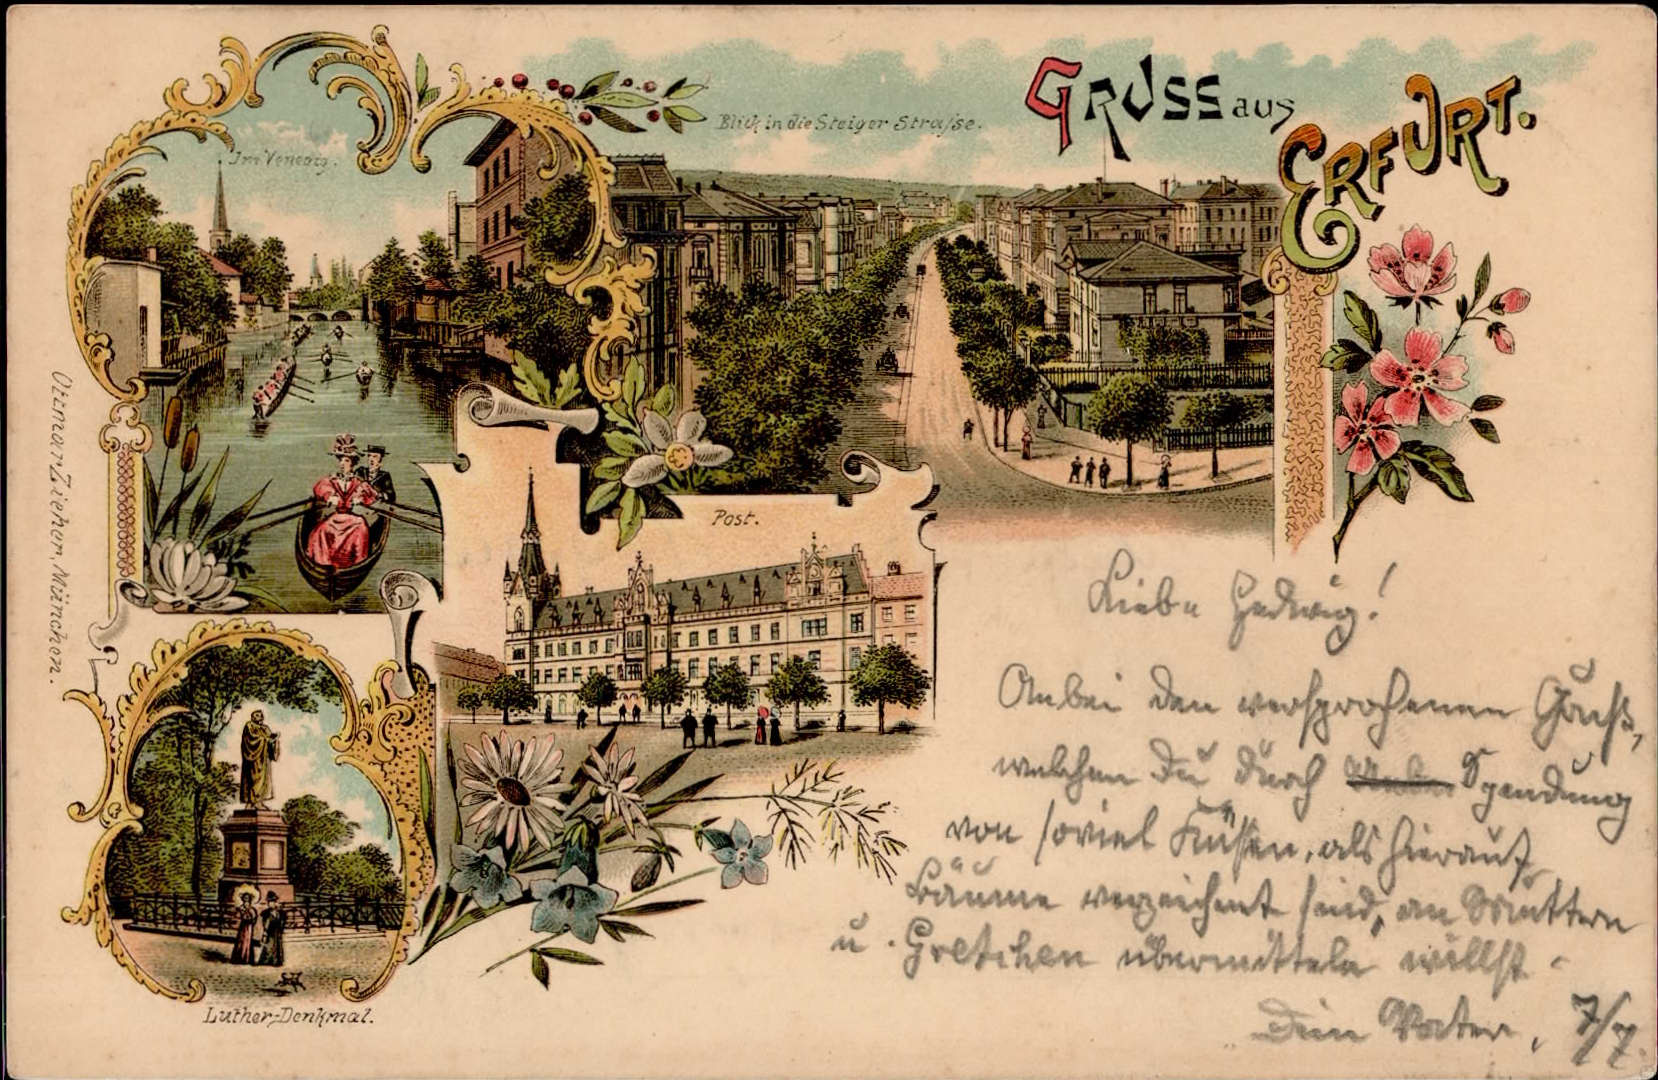 GRUSS aus
ERFURT.
Blick in die Steiger Straſse.
Im Venedig.
Post.
Luther-Denkmal.
Ottmar Zieher, München.
Liebe Hedwig!
Anbei den versprochenen Gruß,
welchen Du durch Spendung
von soviel Küssen, als hierauf
Bäume verzeichnet sind, an Muttern
u. Gretchen übermitteln willst.
Dein Vater, 7/7.